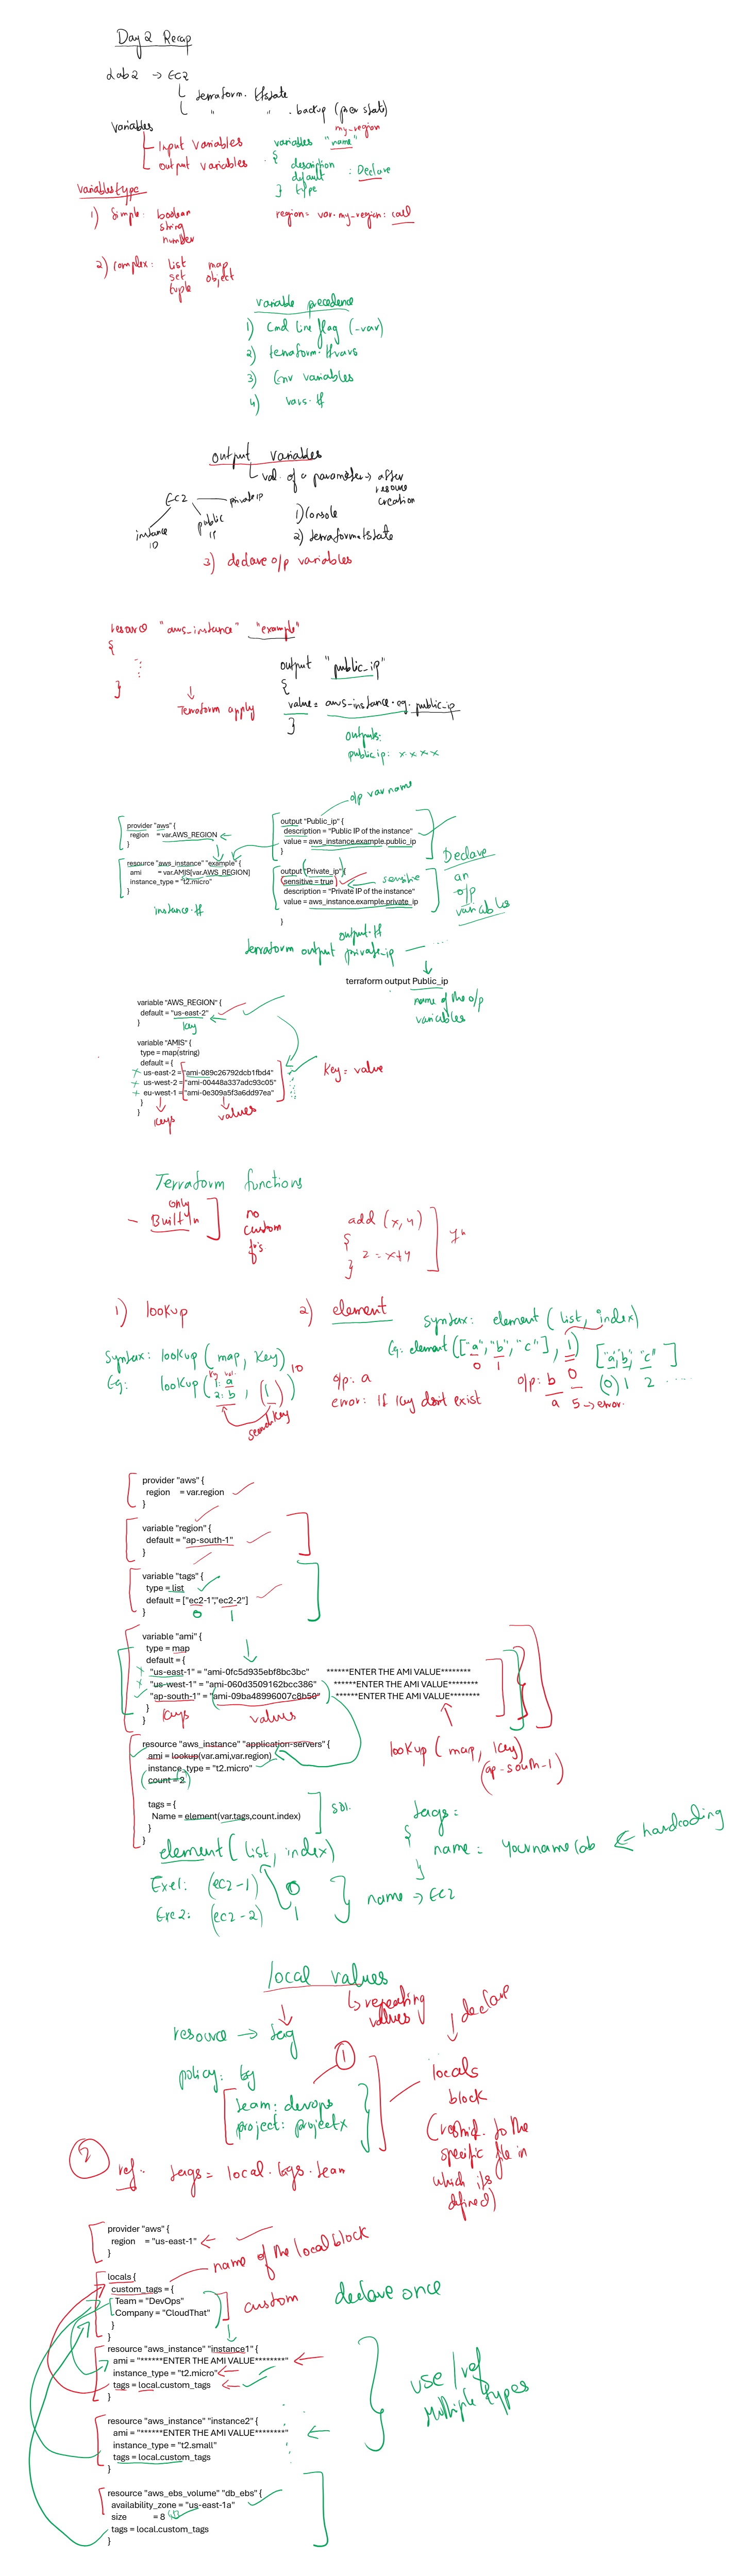 Day 2 Recap
Lab2 → EC2
terraform.tfstate
" " .backup (prev state)
Variables
Input Variables
Output variables
my-region
variables "name"
{
description
default : Declare
} type
Variables type
1) Simple: boolean
string
number
region = var.my-region: call
2) Complex: List map
set object
tuple
Variable precedence
1) Cmd line flag (-var)
2) terraform.tfvars
3) Env variables
4) vars.tf
Output Variables
val. of a parameter → after
resource
creation
EC2 private ip
public
IP
instance
ID
1) Console
2) terraform.tfstate
3) declare o/p variables
"aws_instance" "example"
{
}
Terraform apply
output "public_ip"
{
value = aws_instance.eg.public_ip
}
outputs:
public ip: x x x x
o/p var name
provider "aws" {
region = var.AWS_REGION
}
resource "aws_instance" "example" {
ami = var.AMIS[var.AWS_REGION]
instance_type = "t2.micro"
}
instance.tf
output "Public_ip" {
description = "Public IP of the instance"
value = aws_instance.example.public_ip
}
output "Private_ip" {
sensitive = true
sensitive
description = "Private IP of the instance"
value = aws_instance.example.private_ip
}
output.tf
Declare
an
o/p
variables
terraform output private_ip
terraform output Public_ip
name of the o/p
variables
variable "AWS_REGION" {
default = "us-east-2"
}
key
variable "AMIS" {
type = map(string)
default = {
us-east-2 = "ami-089c26792dcb1fbd4"
us-west-2 = "ami-00448a337adc93c05"
eu-west-1 = "ami-0e309a5f3a6dd97ea"
}
}
Key = value
keys values
Terraform functions
only
- Built in
no
custom
fn's
add (x, y)
{
z = x+y
}
1) lookup
Syntax: lookup (map, key)
Eg: lookup (1: a
2: b, (1))
search key
10
o/p: a
error: If key don't exist
2) element
syntax: element (list, index)
Eg: element (["a", "b", "c"], 1)
0 1
["a", "b", "c"]
(0) 1 2
o/p: b 0
a 5 → error.
provider "aws" {
region = var.region
}
variable "region" {
default = "ap-south-1"
}
variable "tags" {
type = list
default = ["ec2-1","ec2-2"]
}
0 1
variable "ami" {
type = map
default = {
"us-east-1" = "ami-0fc5d935ebf8bc3bc" ******ENTER THE AMI VALUE********
"us-west-1" = "ami-060d3509162bcc386" ******ENTER THE AMI VALUE********
"ap-south-1" = "ami-09ba48996007c8b50" ******ENTER THE AMI VALUE********
}
}
keys values
lookup (map, key)
(ap-south-1)
resource "aws_instance" "application-servers" {
ami = lookup(var.ami,var.region)
instance_type = "t2.micro"
count = 2
tags = {
Name = element(var.tags,count.index)
}
}
element (list, index)
tags =
{
name = yournamelab ← hardcoding
}
Exe1: (ec2-1) 0
Exe2: (ec2-2) 1
name → EC2
local values
↳ repeating
values
resource → tag
policy: tag
1
team: devops
project: projectx
declare
locals
block
(restrict. to the
specific file in
which its
defined)
2
ref: tags = local.tags.team
provider "aws" {
region = "us-east-1"
}
name of the local block
locals {
custom_tags = {
Team = "DevOps"
Company = "CloudThat"
}
}
custom declare once
resource "aws_instance" "instance1" {
ami = "******ENTER THE AMI VALUE********"
instance_type = "t2.micro"
tags = local.custom_tags
}
resource "aws_instance" "instance2" {
ami = "******ENTER THE AMI VALUE********"
instance_type = "t2.small"
tags = local.custom_tags
}
use / ref
multiple types
resource "aws_ebs_volume" "db_ebs" {
availability_zone = "us-east-1a"
size = 8
tags = local.custom_tags
}